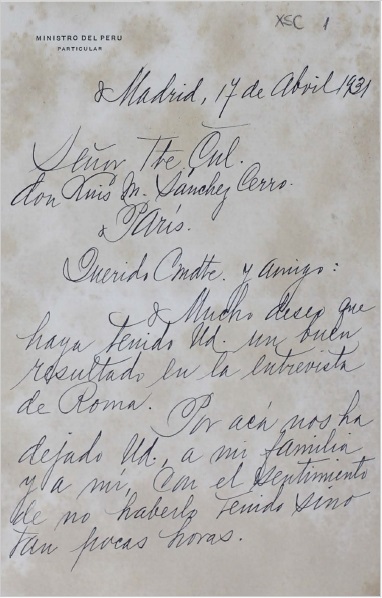 XSC 1
MINISTRO DEL PERU
PARTICULAR
Madrid, 17 de Abril 1931
Señor Tte. Cnl.
don Luis M. Sánchez Cerro.
París.
Querido Cmdte. y amigo:
Mucho deseo que
haya tenido Ud. un buen
resultado en la entrevista
de Roma. Por acá nos ha
dejado Ud., a mi familia
y a mí, con el sentimiento
de no haberlo tenido sino
tan pocas horas.